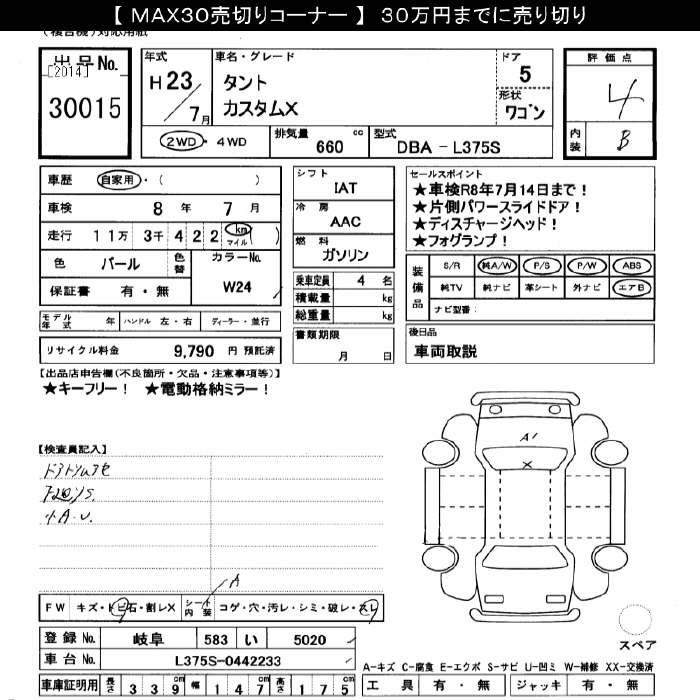 【 MAX30売切りコーナー 】 30万円までに売り切り
(複合機)対応用紙
出品No.
[2014]
30015
年式
H23/7月
車名・グレード
タント
カスタムX
ドア
5
形状
ワゴン
評価点
4
内装
B
2WD・4WD
排気量 660 cc
型式 DBA - L375S
車歴 自家用・( )
車検 8 年 7 月
走行 11万 3千 4 2 2 km マイル ( )
色 パール 色替 カラーNo. W24
保証書 有・無
モデル年式 年 ハンドル 左・右 ディーラー・並行
リサイクル料金 9,790 円 預託済
シフト
IAT
冷房
AAC
燃料
ガソリン
乗車定員 4 名
積載量 kg
総重量 kg
書類期限
月 日
セールスポイント
★車検R8年7月14日まで！
★片側パワースライドドア！
★ディスチャージヘッド！
★フォグランプ！
装備品
S/R 純A/W P/S P/W ABS
純TV 純ナビ 革シート 外ナビ エアB
ナビ型番:
後日品
車両取説
【出品店申告欄(不良箇所・欠品・注意事項等)】
★キーフリー！ ★電動格納ミラー！
【検査員記入】
A1
X
A
FW キズ・トビ石・割レX
シート内装 コゲ・穴・汚レ・シミ・破レ・スレ
登録No. 岐阜 583 い 5020
車台No. L375S-0442233
車庫証明用 長さ 3 3 9 cm 幅 1 4 7 cm 高さ 1 7 5 cm
スペア
A-キズ C-腐食 E-エクボ S-サビ U-凹ミ W-補修 XX-交換済
工具 有・無 ジャッキ 有・無